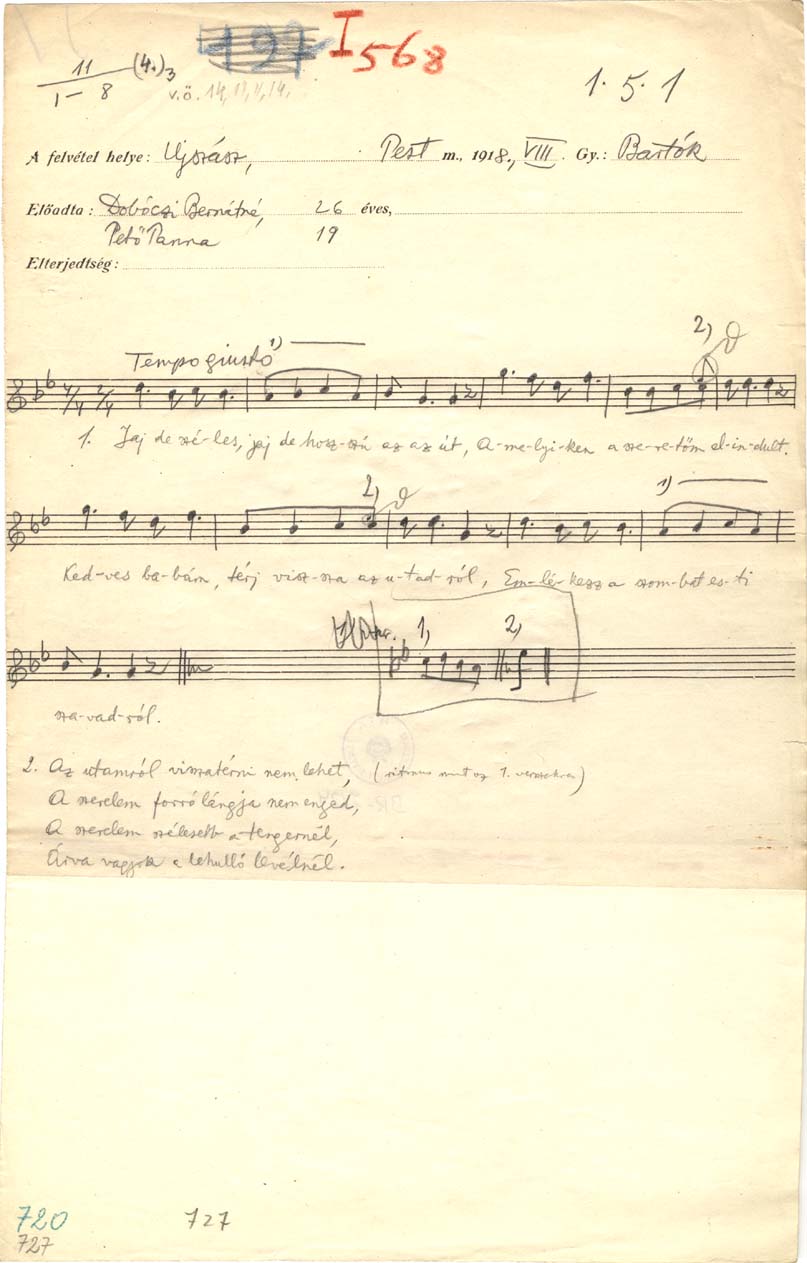 127 I 568
11 (4.)3
I – 8
v.ö. 14, 11, 11, 14.
1. 5. 1
A felvétel helye: Ujszász, Pest m., 1918., VIII. Gy.: Bartók
Előadta: Dobóczi Bernátné, 26 éves,
Pető Panna 19
Elterjedtség:
2)
Tempo giusto 1)
4/4 2/4
1. Jaj de szé-les, jaj de hosz-szú ez az út, A-me-lyi-ken a sze-re-tőm el-in-dult.
2) 1)
Ked-ves ba-bám, térj visz-sza az u-tad-ról, Em-lé-kezz a szom-bat es-ti
1, 2,
sza-vad-ról.
2. Az utamról visszatérni nem lehet, (ritmus mint az 1. versszakban)
A szerelem forró lángja nem enged,
A szerelem szélesebb a tengernél,
Árva vagyok a lehulló levélnél.
720 727
727